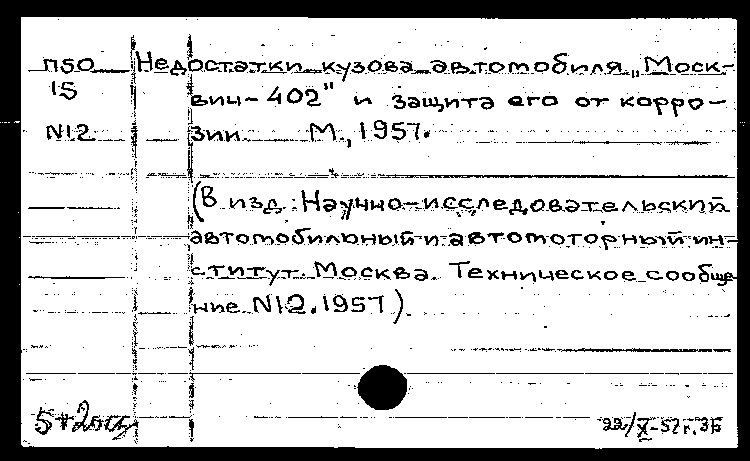 П50 Недостатки кузова автомобиля „Моск-
15 вич-402" и защита его от корро-
N12 зии М., 1957.
(В изд.: Научно-исследовательский
автомобильный и автомоторный ин-
ститут. Москва. Техническое сообще-
ние N12. 1957).
22/X-57г. ЗБ